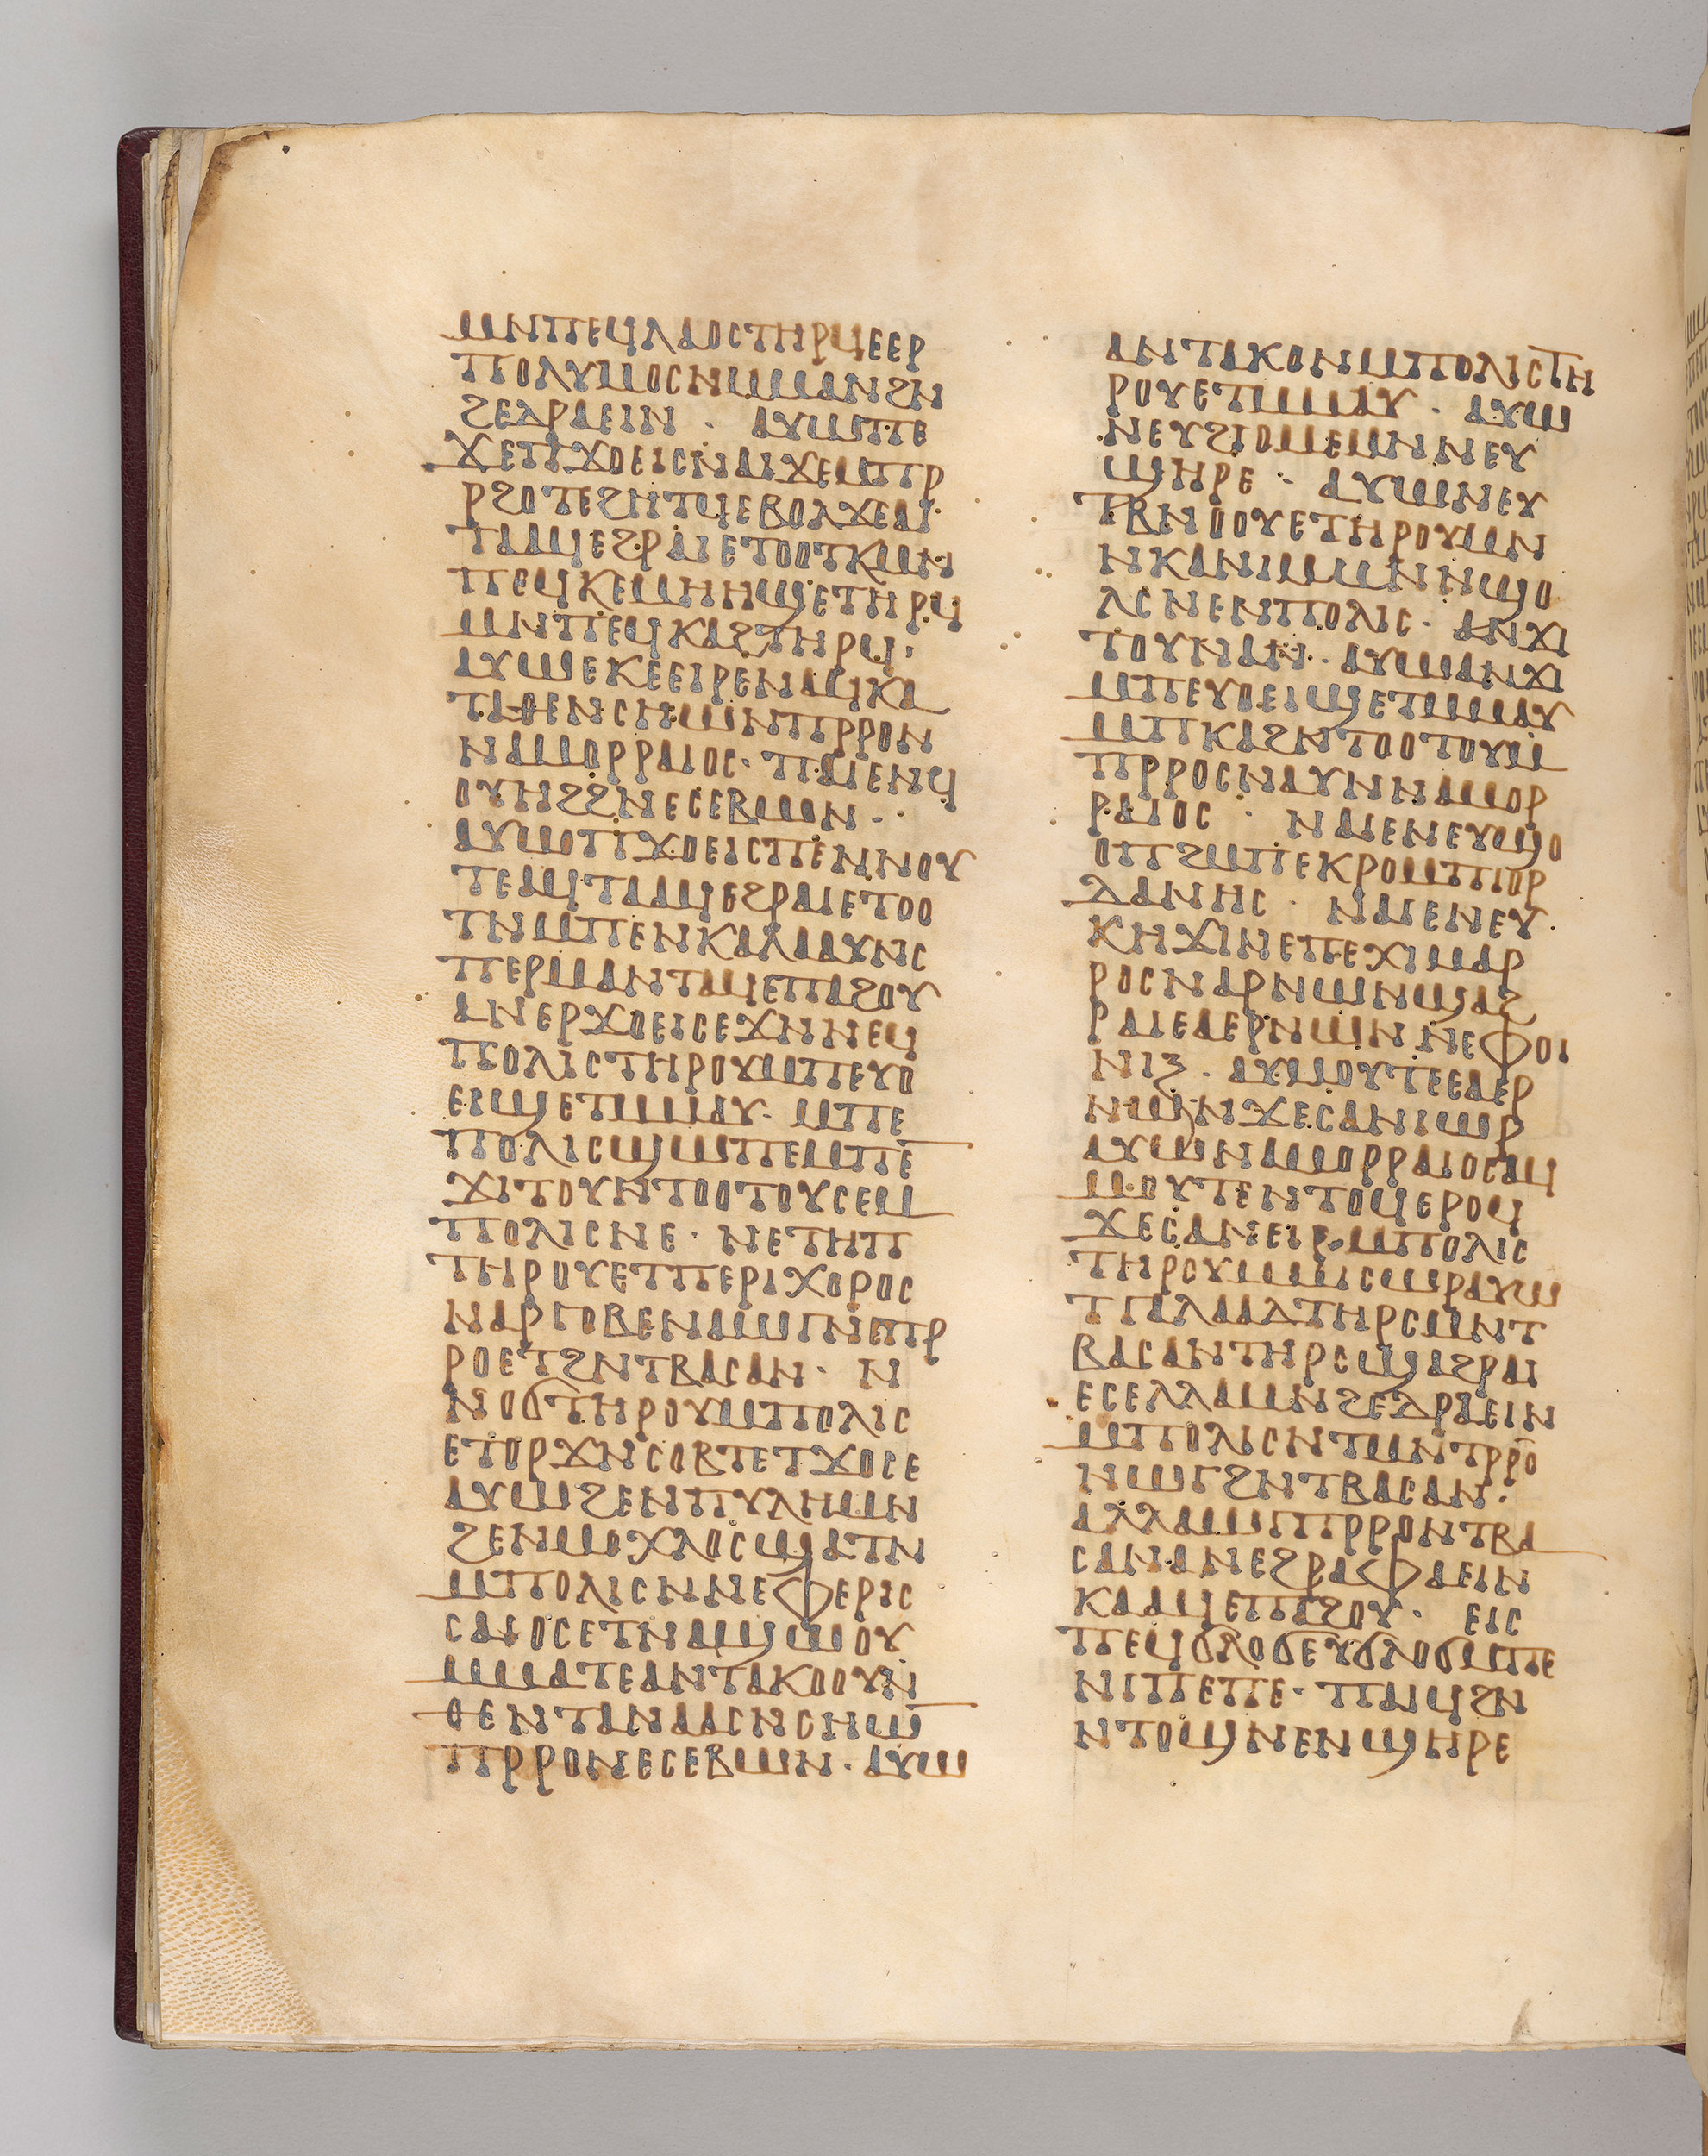 ⲙⲛⲡⲉϥⲗⲁⲟⲥⲧⲏⲣϥⲉⲉⲣ
ⲡⲟⲗⲩⲙⲟⲥⲛⲙⲙⲁⲛϩⲛ
ϩⲉⲇⲣⲁⲉⲓⲛ · ⲁⲩⲱⲡⲉ
ϫⲉⲡϫⲟⲉⲓⲥⲛⲁⲓϫⲉⲙⲡⲣ
ⲣϩⲟⲧⲉϩⲏⲧϥⲉⲃⲟⲗϫⲉⲁⲓ
ⲧⲁⲁϥⲉϩⲣⲁⲓⲉⲧⲟⲟⲧⲕⲙⲛ
ⲡⲉϥⲕⲉⲙⲏⲏϣⲉⲧⲏⲣϥ
ⲙⲛⲡⲉϥⲕⲁϩⲧⲏⲣϥ·
ⲁⲩⲱⲉⲕⲉⲉⲓⲣⲉⲛⲁϥⲕⲁ
ⲧⲁⲑⲉⲛⲥⲏⲱⲛⲡⲣⲣⲟⲛ
ⲛⲁⲙⲟⲣⲣⲁⲓⲟⲥ· ⲡⲁⲓⲉⲛϥ
ⲟⲩⲏϩϩⲛⲉⲥⲉⲃⲱⲛ··
ⲁⲩⲱⲡϫⲟⲉⲓⲥⲡⲉⲛⲛⲟⲩ
ⲧⲉⲁϥⲧⲁⲁϥⲉϩⲣⲁⲓⲉⲧⲟⲟ
ⲧⲛⲙⲡⲉⲛⲕⲁⲗⲁⲁⲩⲛⲥ
ⲡⲉⲣⲙⲁⲛⲧⲁϥⲉⲡⲁϩⲟⲩ
ⲁⲛⲉⲣϫⲟⲉⲓⲥⲉϫⲛⲛⲉϥ
ⲡⲟⲗⲓⲥⲧⲏⲣⲟⲩⲙⲡⲉⲩⲟ
ⲉⲓϣⲉⲧⲙⲙⲁⲩ· ⲙⲡⲉ
ⲡⲟⲗⲓⲥϣⲱⲡⲉⲙⲡⲉ̅
ϫⲓⲧⲟⲩⲛⲧⲟⲟⲧⲟⲩⲥⲉⲙ
ⲡⲟⲗⲓⲥⲛⲉ· ⲛⲉⲧⲏⲡ
ⲧⲏⲣⲟⲩⲉⲡⲡⲉⲣⲓⲭⲟⲣⲟⲥ
ⲛⲁⲣⲅⲟⲃⲉⲛⲁⲱⲅⲛⲡⲣ
ⲣⲟⲉⲧϩⲛⲧⲃⲁⲥⲁⲛ· ⲛ
ⲛⲟϭⲧⲏⲣⲟⲩⲙⲡⲟⲗⲓⲥ
ⲉⲧⲟⲣϫⲛⲥⲟⲃⲧⲉⲧϫⲟⲥⲉ
ⲁⲩⲱϩⲉⲛⲡⲩⲗⲏⲙⲛ
ϩⲉⲛⲙⲟⲭⲗⲟⲥϣⲁⲧⲛ
ⲙⲡⲟⲗⲓⲥⲛⲛⲉⲫⲉⲣⲓⲥ
ⲥⲁⲓⲟⲥⲉⲧⲛⲁϣⲱⲟⲩ
ⲙⲙⲁⲧⲉⲁⲛⲧⲁⲕⲟⲟⲩⲛ
ⲑⲉⲛⲧⲁⲛⲁⲁⲥⲛⲥⲏⲱ̅
ⲡⲣⲣⲟⲛⲉⲥⲉⲃⲱⲛ· ⲁⲩⲱ
ⲁⲛⲧⲁⲕⲟⲛⲙⲡⲟⲗⲓⲥⲧⲏ
ⲣⲟⲩⲉⲧⲙⲙⲁⲩ· ⲁⲩⲱ
ⲛⲉⲩϩⲓⲟⲙⲉⲙⲛⲛⲉⲩ
ϣⲏⲣⲉ· ⲁⲩⲱⲛⲉⲩ
ⲧⲃⲛⲟⲟⲩⲉⲧⲏⲣⲟⲩⲙⲛ
ⲛⲕⲁⲛⲓⲙⲙⲛⲛϣⲟ
ⲗⲥⲛⲉⲙⲡⲟⲗⲓⲥ· ⲁⲛϫⲓ
ⲧⲟⲩⲛⲁⲛ· ⲁⲩⲱⲁⲛϫⲓ
ⲙⲡⲉⲩⲟⲉⲓϣⲉⲧⲙⲙⲁⲩ
ⲙⲡⲕⲁϩⲛⲧⲟⲟⲧⲟⲩⲙ
ⲡⲣⲣⲟⲥⲛⲁⲩⲛⲛⲁⲙⲟⲣ
ⲣⲁⲓⲟⲥ · ⲛⲁⲓⲉⲛⲉⲩϣⲟ
ⲟⲡϩⲙⲡⲉⲕⲣⲟⲙⲡⲓⲟⲣ
ⲇⲁⲛⲏⲥ · ⲛⲁⲓⲉⲛⲉⲩ
ⲕⲏϫⲓⲛⲉⲡⲉⲭⲓⲙⲁⲣ
ⲣⲟⲥⲛⲁⲣⲛⲱⲛϣⲁϩ
ⲣⲁⲓⲉⲁⲉⲣⲛⲱⲛⲛⲉⲫⲟⲓ
ⲛⲓⲝ · ⲁⲩⲙⲟⲩⲧⲉⲉⲁⲉⲣ
ⲛⲱⲛϫⲉⲥⲁⲛⲓⲱⲣ
ⲁⲩⲱⲛⲁⲙⲟⲣⲣⲁⲓⲟⲥⲁϥ
ⲙⲟⲩⲧⲉⲛⲧⲟϥⲉⲣⲟϥ
ϫⲉⲥⲁⲛⲉⲓⲣ·ⲙⲡⲟⲗⲓⲥ
ⲧⲏⲣⲟⲩⲙⲙⲓⲥⲱⲣⲁⲩⲱ
ⲧⲅⲁⲗⲁⲁⲇⲧⲏⲣⲥⲙⲛⲧ
ⲃⲁⲥⲁⲛⲧⲏⲣⲥϣⲁϩⲣⲁⲓ
ⲉⲥⲉⲗⲗⲁⲙⲛϩⲉⲇⲣⲁⲉⲓⲛ
ⲙⲡⲟⲗⲓⲥⲛⲧⲙⲛⲧⲣⲣⲟ
ⲛⲱⲅϩⲛⲧⲃⲁⲥⲁⲛ·
ⲁⲗⲗⲁⲱⲅⲡⲣⲣⲟⲛⲧⲃⲁ
ⲥⲁⲛⲁⲛⲉϩⲣⲁⲫⲁⲉⲓⲛ
ⲕⲁⲁϥⲉⲡⲁϩⲟⲩ· ⲉⲓⲥ
ⲡⲉϥϭⲗⲟϭⲉⲩϭⲗⲟϭⲙⲡⲉ
ⲛⲓⲡⲉⲡⲉ· ⲡⲁⲓϥϩⲛ
ⲛⲧⲟϣⲛⲉⲛϣⲏⲣⲉ